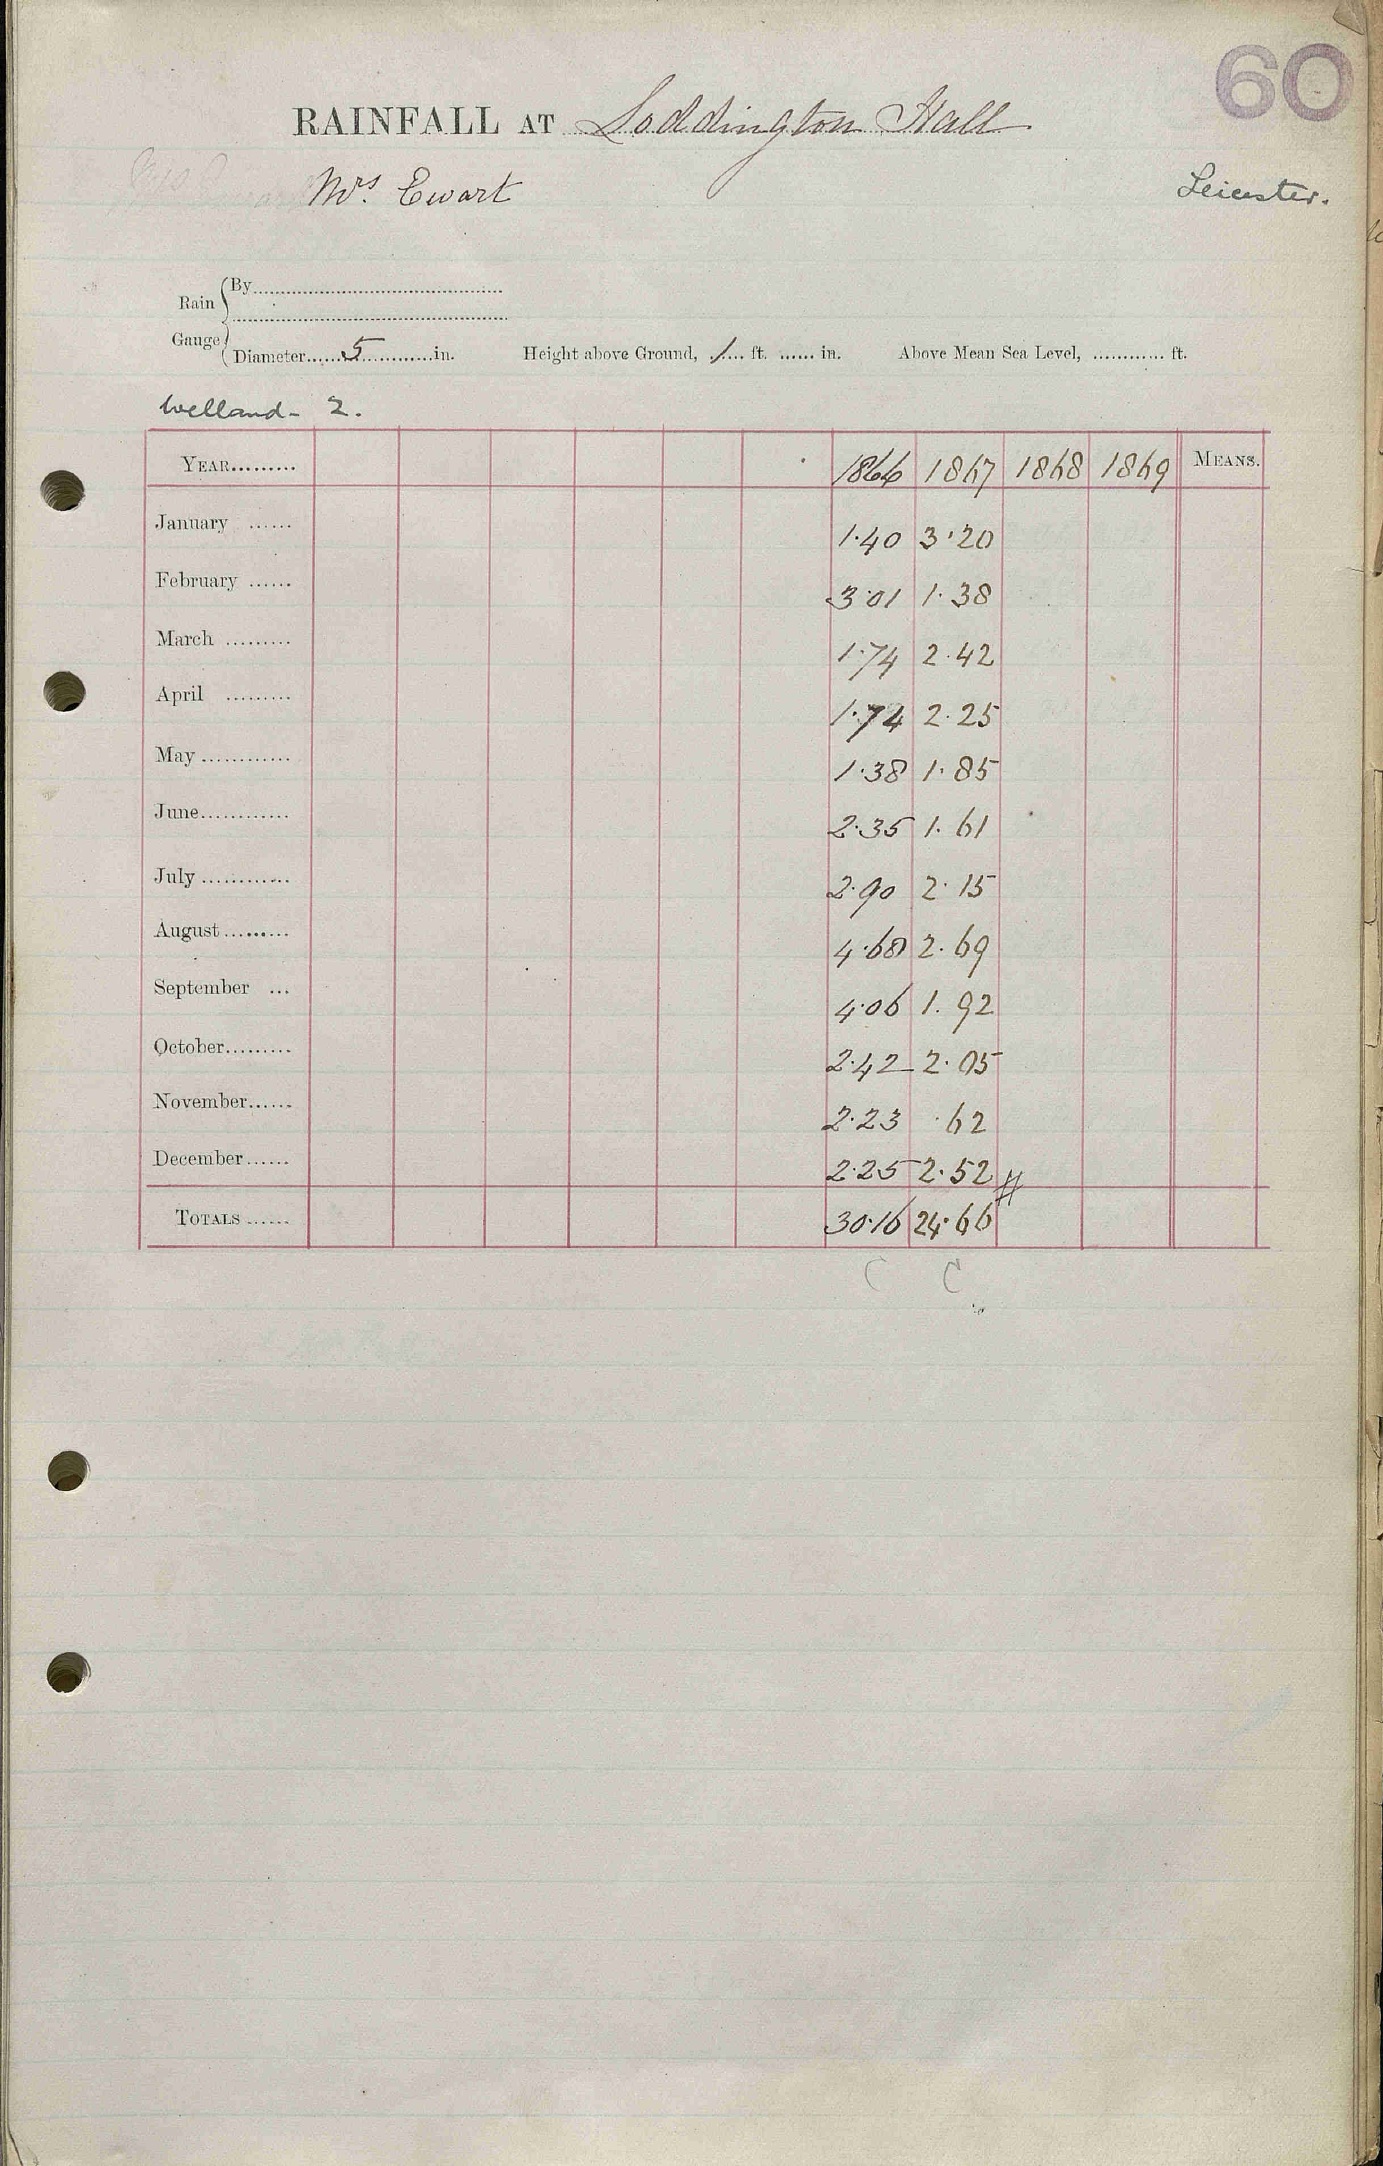 60
RAINFALL AT Loddington Hall
Mrs. Ewart Leicester.
Rain Gauge { By
Diameter 5 in. Height above Ground, 1 ft. in. Above Mean Sea Level, ft.
Welland - 2.
YEAR 1866 1867 1868 1869 MEANS.
January 1.40 3.20
February 3.01 1.38
March 1.74 2.42
April 1.74 2.25
May 1.38 1.85
June 2.35 1.61
July 2.90 2.15
August 4.68 2.69
September 4.06 1.92
October 2.42 2.05
November 2.23 .62
December 2.25 2.52 #
TOTALS 30.16 24.66
C C